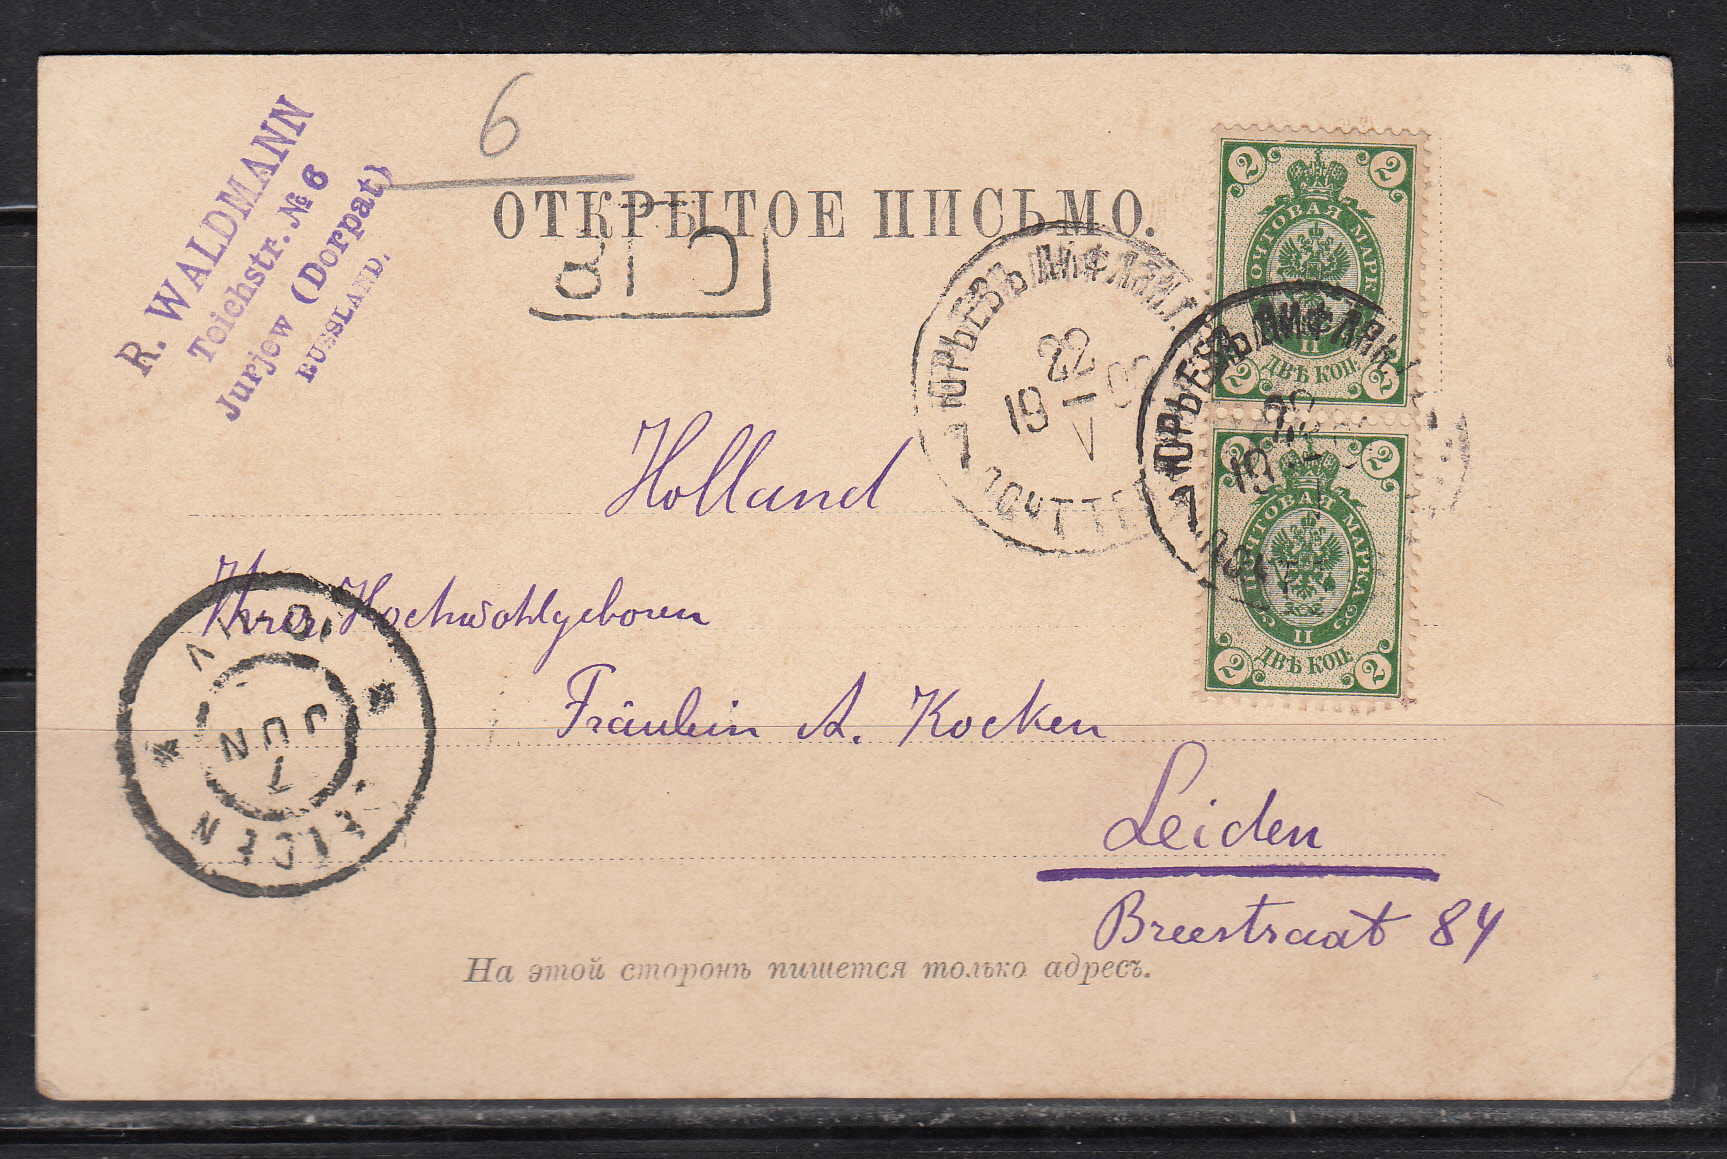 R. WALDMANN
Teichstr. № 6
Jurjew (Dorpat)
RUSSLAND.
6
ОТКРЫТОЕ ПИСЬМО.
ЮРЬЕВЪ ЛИФЛЯН. Г.
22
19 V
7
ЮРЬЕВЪ ЛИФЛЯН
22
19
7
2 2
ПОЧТОВАЯ МАРКА
II
ДВѢ КОП.
2 2
2 2
ПОЧТОВАЯ МАРКА
II
ДВѢ КОП.
2 2
Holland
Ihrer Hochwohlgeboren
Fräulein A. Kocken
Leiden
Breestraat 84
LEIDEN
7
JUN
На этой сторонѣ пишется только адресъ.